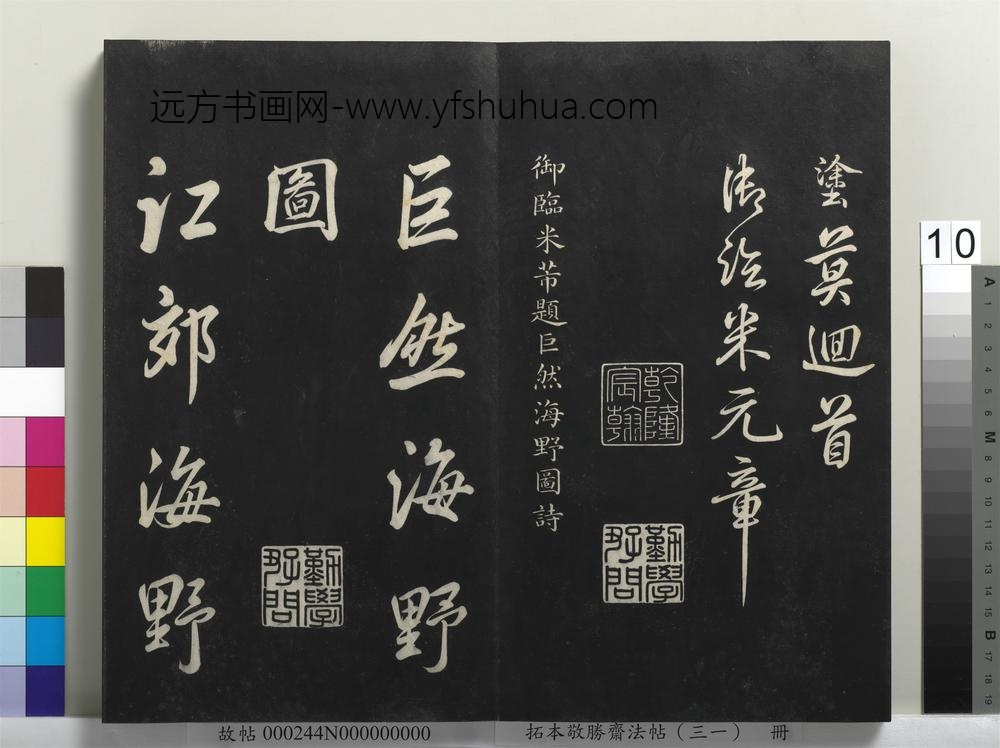 远方书画网-www.yfshuhua.com
塗莫迴首
御臨米元章
乾隆宸翰
勤學好問
御臨米芾題巨然海野圖詩
巨然海野
圖
勤學好問
江郊海野
10
A 1 2 3 4 5 6 M 8 9 10 11 12 13 14 15 B 17 18 19
故帖 000244N000000000
拓本敬勝齋法帖（三一） 冊